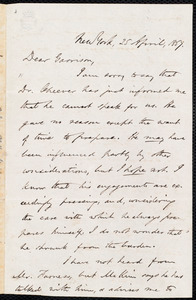 New York, 25 April, 1857.
Dear Garrison,
I am sorry to say that
Dr. Cheever has just informed me
that he cannot speak for us. He
gave no reason except the want
of time to prepare. He may have
been influenced partly by other
considerations, but I hope not. I
know that his engagements are ex-
ceedingly pressing, and, considering
the care with which he always pre-
pares himself, I do not wonder that
he shrunk from the burden.
I have not heard from
Mr. Furness, but McKim says he has
talked with him, and advises me to